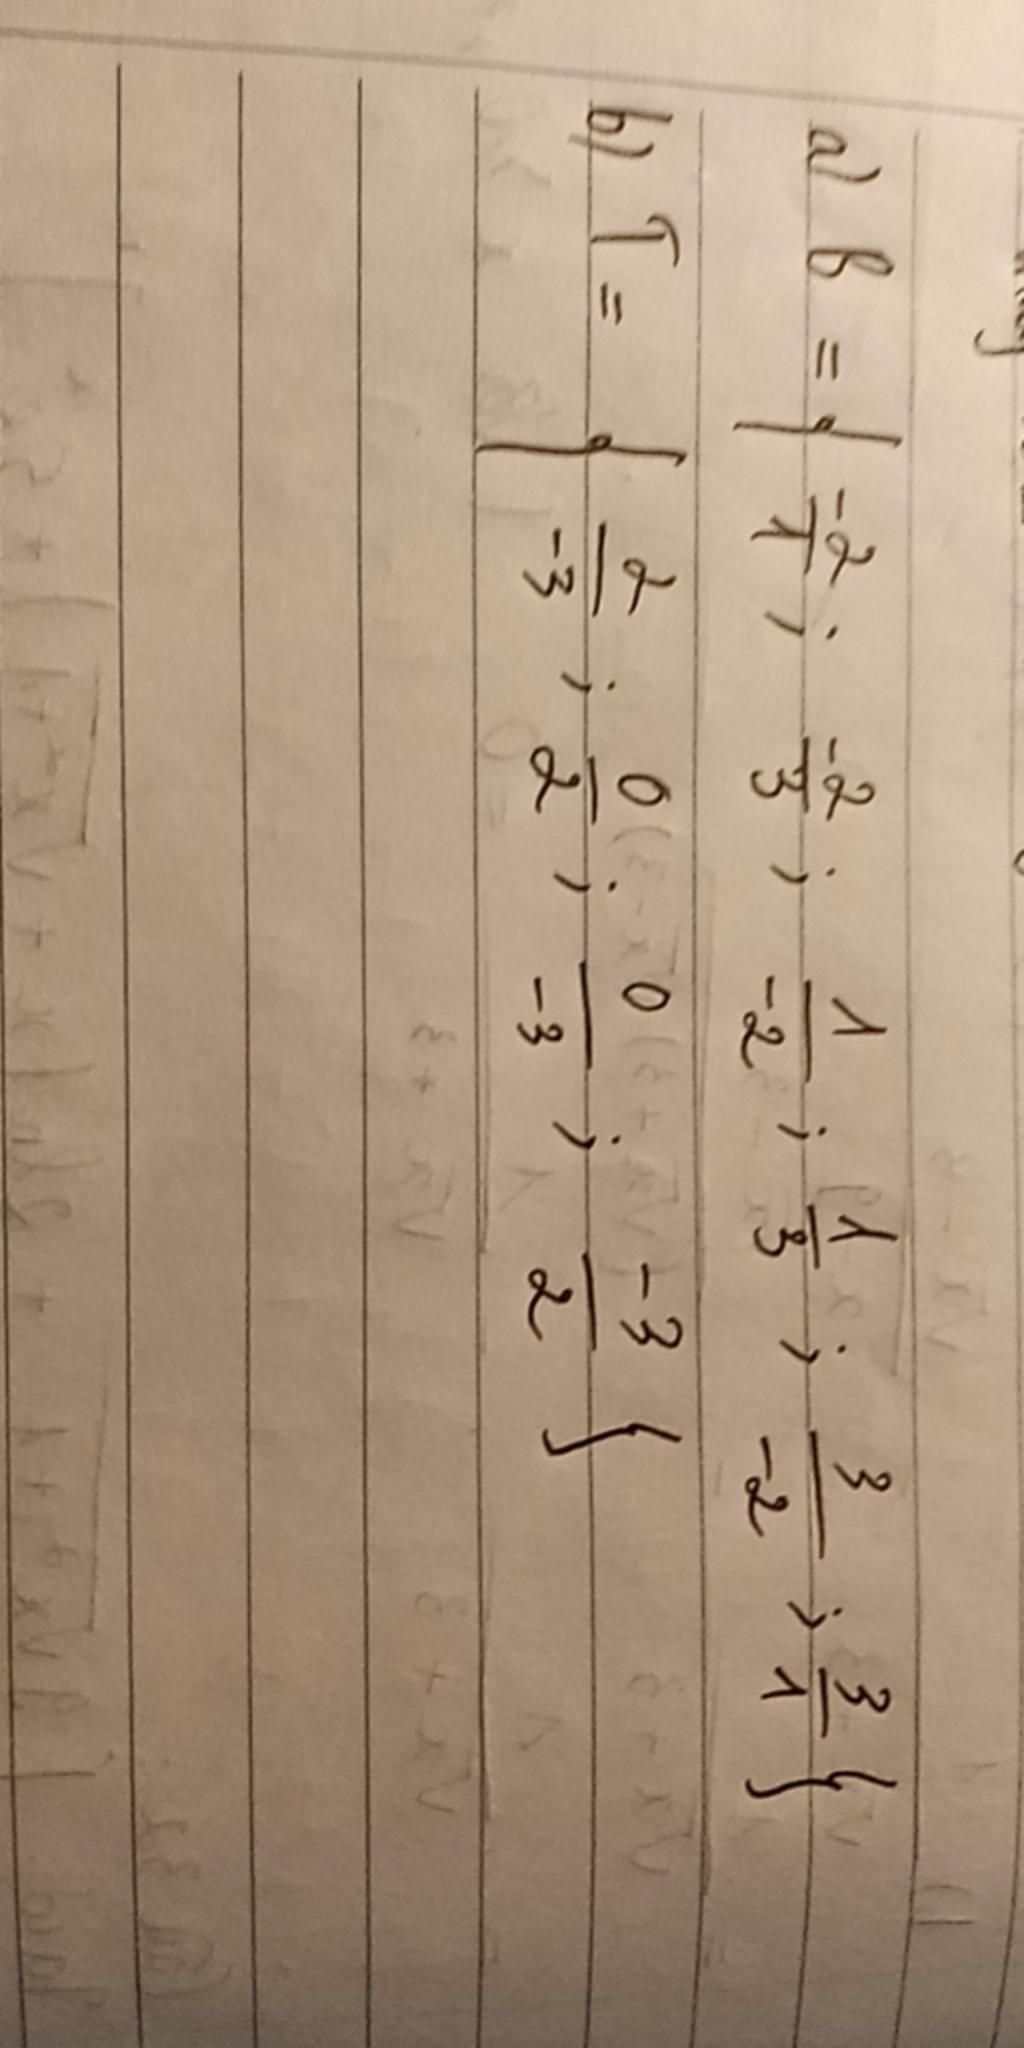 a) B = { -2/1 ; -2/3 ; 1/-2 ; 1/3 ; 3/-2 ; 3/1 }
b) T = { 2/-3 ; 0/2 ; 0/-3 ; -3/2 }